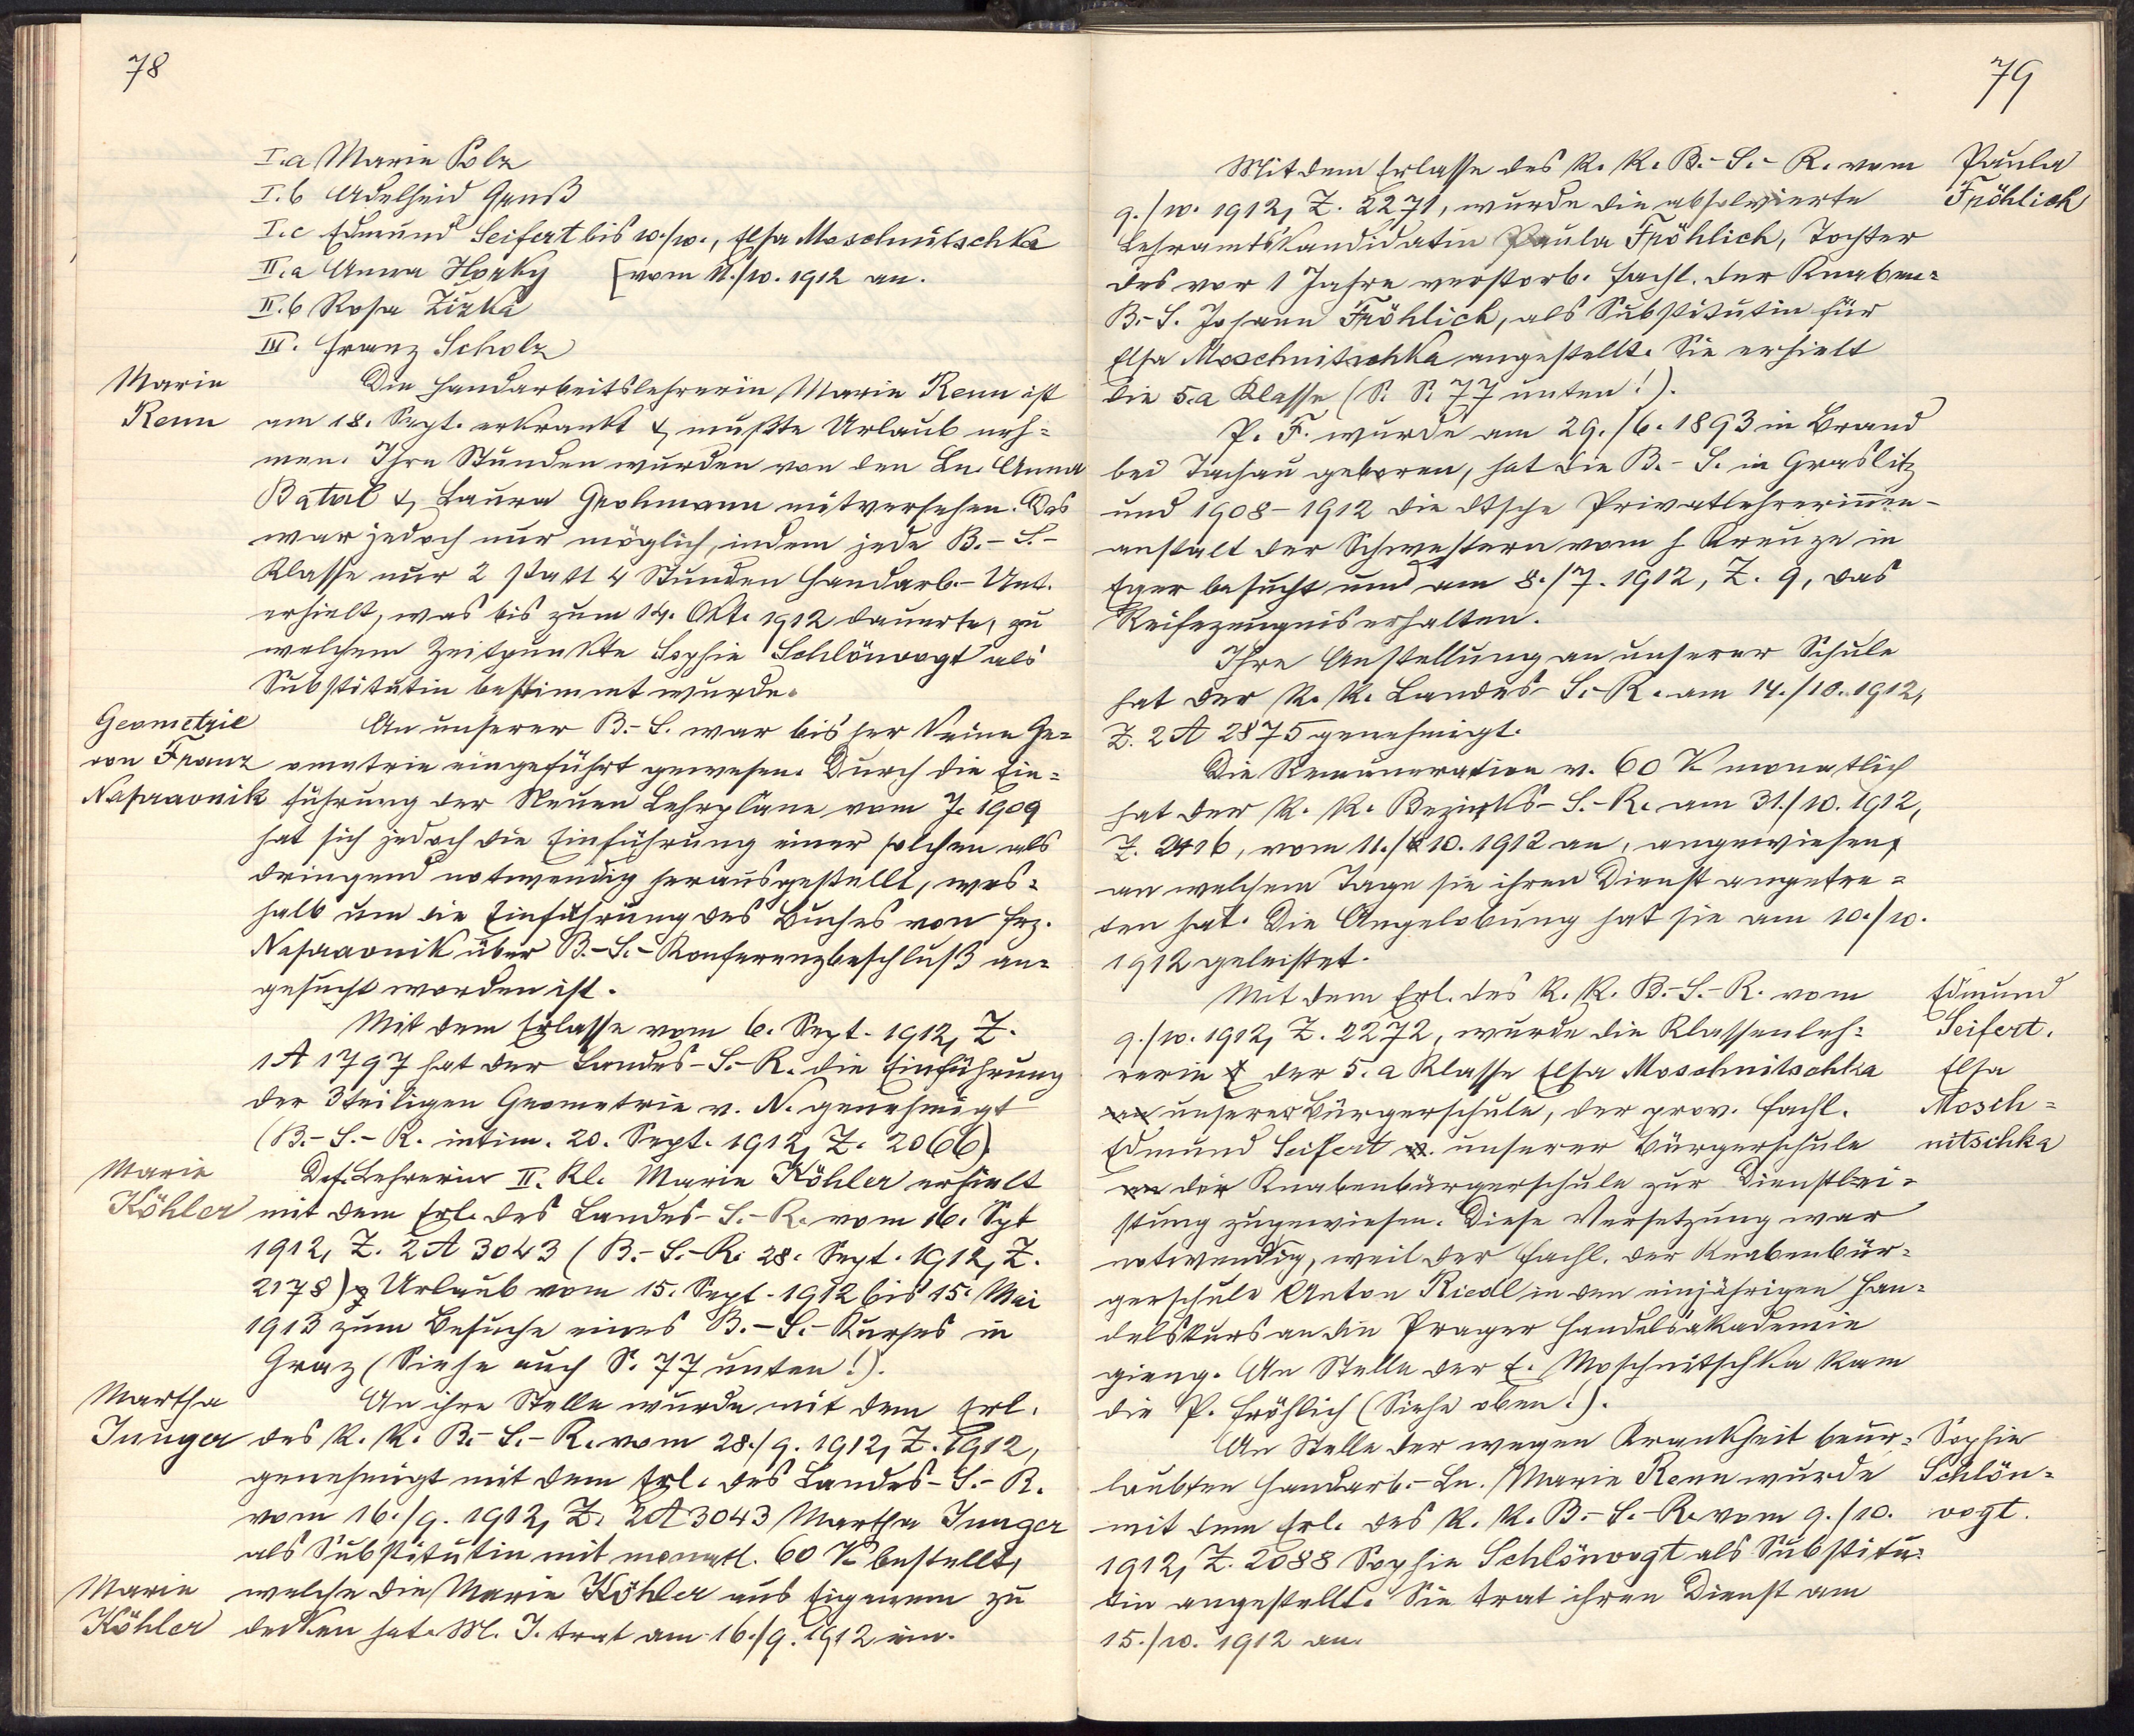 78
I.a Marie Polz
I.b Adelheid Gauß
I.c Edmund Seifert bis 10./10., Elsa Moschnitschka
II.a Anna Horky [vom 11./10. 1912 an.
II.b Rosa Zizka
III. Franz Scholz
Marie
Renn
Die Handarbeitslehrerin Marie Renn ist
am 18. Sept. erkrankt & mußte Urlaub neh=
men. Ihre Stunden wurden von den Ln. Anna
Batal & Laura Grohmann mitversehen. Das
war jedoch nur möglich, indem jede B.-S.-
Klasse nur 2 statt 4 Stunden Handarb.-Unt.
erhielt, was bis zum 14. Okt. 1912 dauerte, zu
welchem Zeitpunkte Sophie Schlönvogt als
Substitutin bestimmt wurde.
Geometrie
von Franz
Napravnik
An unserer B.-S. war bisher keine Ge=
ometrie eingeführt gewesen. Durch die Ein=
führung der Neuen Lehrpläne vom J. 1909
hat sich jedoch die Einführung einer solchen als
dringend notwendig herausgestellt, wes=
halb um die Einführung des Buches von Frz.
Napravnik über B.-S.-Konferenzbeschluß an=
gesucht worden ist.
Mit dem Erlasse vom 6. Sept. 1912, Z.
1 A 1797 hat der Landes-S.-R. die Einführung
der 3teiligen Geometrie v. N. genehmigt
(B.-S.-R. intim. 20. Sept. 1912, Z. 2066).
Marie
Köhler
Def. Lehrerin II. Kl. Marie Köhler erhielt
mit dem Erl. des Landes-S.-R. vom 16. Spt
1912, Z. 2 A 3043 (B.-S.-R. 28. Sept. 1912, Z.
2178) Urlaub vom 15. Sept. 1912 bis 15. Mai
1913 zum Besuche eines B.-S.-Kurses in
Graz (Siehe auch S. 77 unten!).
Martha
Junger
An ihre Stelle wurde mit dem Erl.
des k. k. B.-S.-R. vom 28./9. 1912, Z. 1912,
genehmigt mit dem Erl. des Landes-S.-R.
vom 16./9. 1912, Z. 2A 3043 Martha Junger
als Substitutin mit monatl. 60 K bestellt,
Marie
Köhler
welche die Marie Köhler aus Eigenem zu
decken hat. M. J. trat am 16./9. 1912 ein.
79
Paula
Fröhlich
Mit dem Erlasse des k. k. B.-S.-R. vom
9./10. 1912, Z. 2271, wurde die absolvierte
Lehramtskandidatin Paula Fröhlich, Tochter
des vor 1 Jahre verstorb. Fachl. der Knaben=
B.-S. Johann Fröhlich, als Substitutin für
Elsa Moschnitschka angestellt. Sie erhielt
die 5.a Klasse (S. S. 77 unten!).
P. F. wurde am 29./6. 1893 in Brand
bei Tachau geboren, hat die B.-S. in Graslitz
und 1908-1912 die dtsche Privatlehrerinnen-
anstalt der Schwestern vom h Kreuze in
Eger besucht und am 8./7. 1912, Z. 9, das
Reifezeugnis erhalten.
Ihre Anstellung an unserer Schule
hat der k. k. Landes-S.-R. am 14./10. 1912,
Z. 2 A 2875 genehmigt.
Die Remuneration v. 60 K monatlich
hat der k. k. Bezirks-S.-R. am 31./10. 1912,
Z. 2416, vom 11./10. 1912 an, angewiesen,
an welchem Tage sie ihren Dienst angetre=
ten hat. Die Angelobung hat sie am 10./10.
1912 geleistet.
Edmund
Seifert.
Elsa
Mosch=
nitschka
Mit dem Erl. des k. k. B.-S.-R. vom
9./10. 1912, Z. 2272, wurde die Klassenleh=
rerin der 5.a Klasse Elsa Moschnitschka
an unserer Bürgerschule, der prov. Fachl.
Edmund Seifert unserer Bürgerschule
an der Knabenbürgerschule zur Dienstlei=
stung zugewiesen. Diese Versetzung war
notwendig, weil der Fachl. der Knabenbür=
gerschule Anton Riedl in den einjährigen Han=
delskurs an die Prager Handelsakademie
gieng. An Stelle der E. Moschnitschka kam
die P. Fröhlich (Siehe oben!).
Sophie
Schlön=
vogt.
An Stelle der wegen Krankheit beur=
laubten Handarb.-Ln. Marie Renn wurde
mit dem Erl. des k. k. B.-S.-R. vom 9./10.
1912, Z. 2088 Sophie Schlönvogt als Substitu=
tin angestellt. Sie trat ihren Dienst am
15./10. 1912 an.